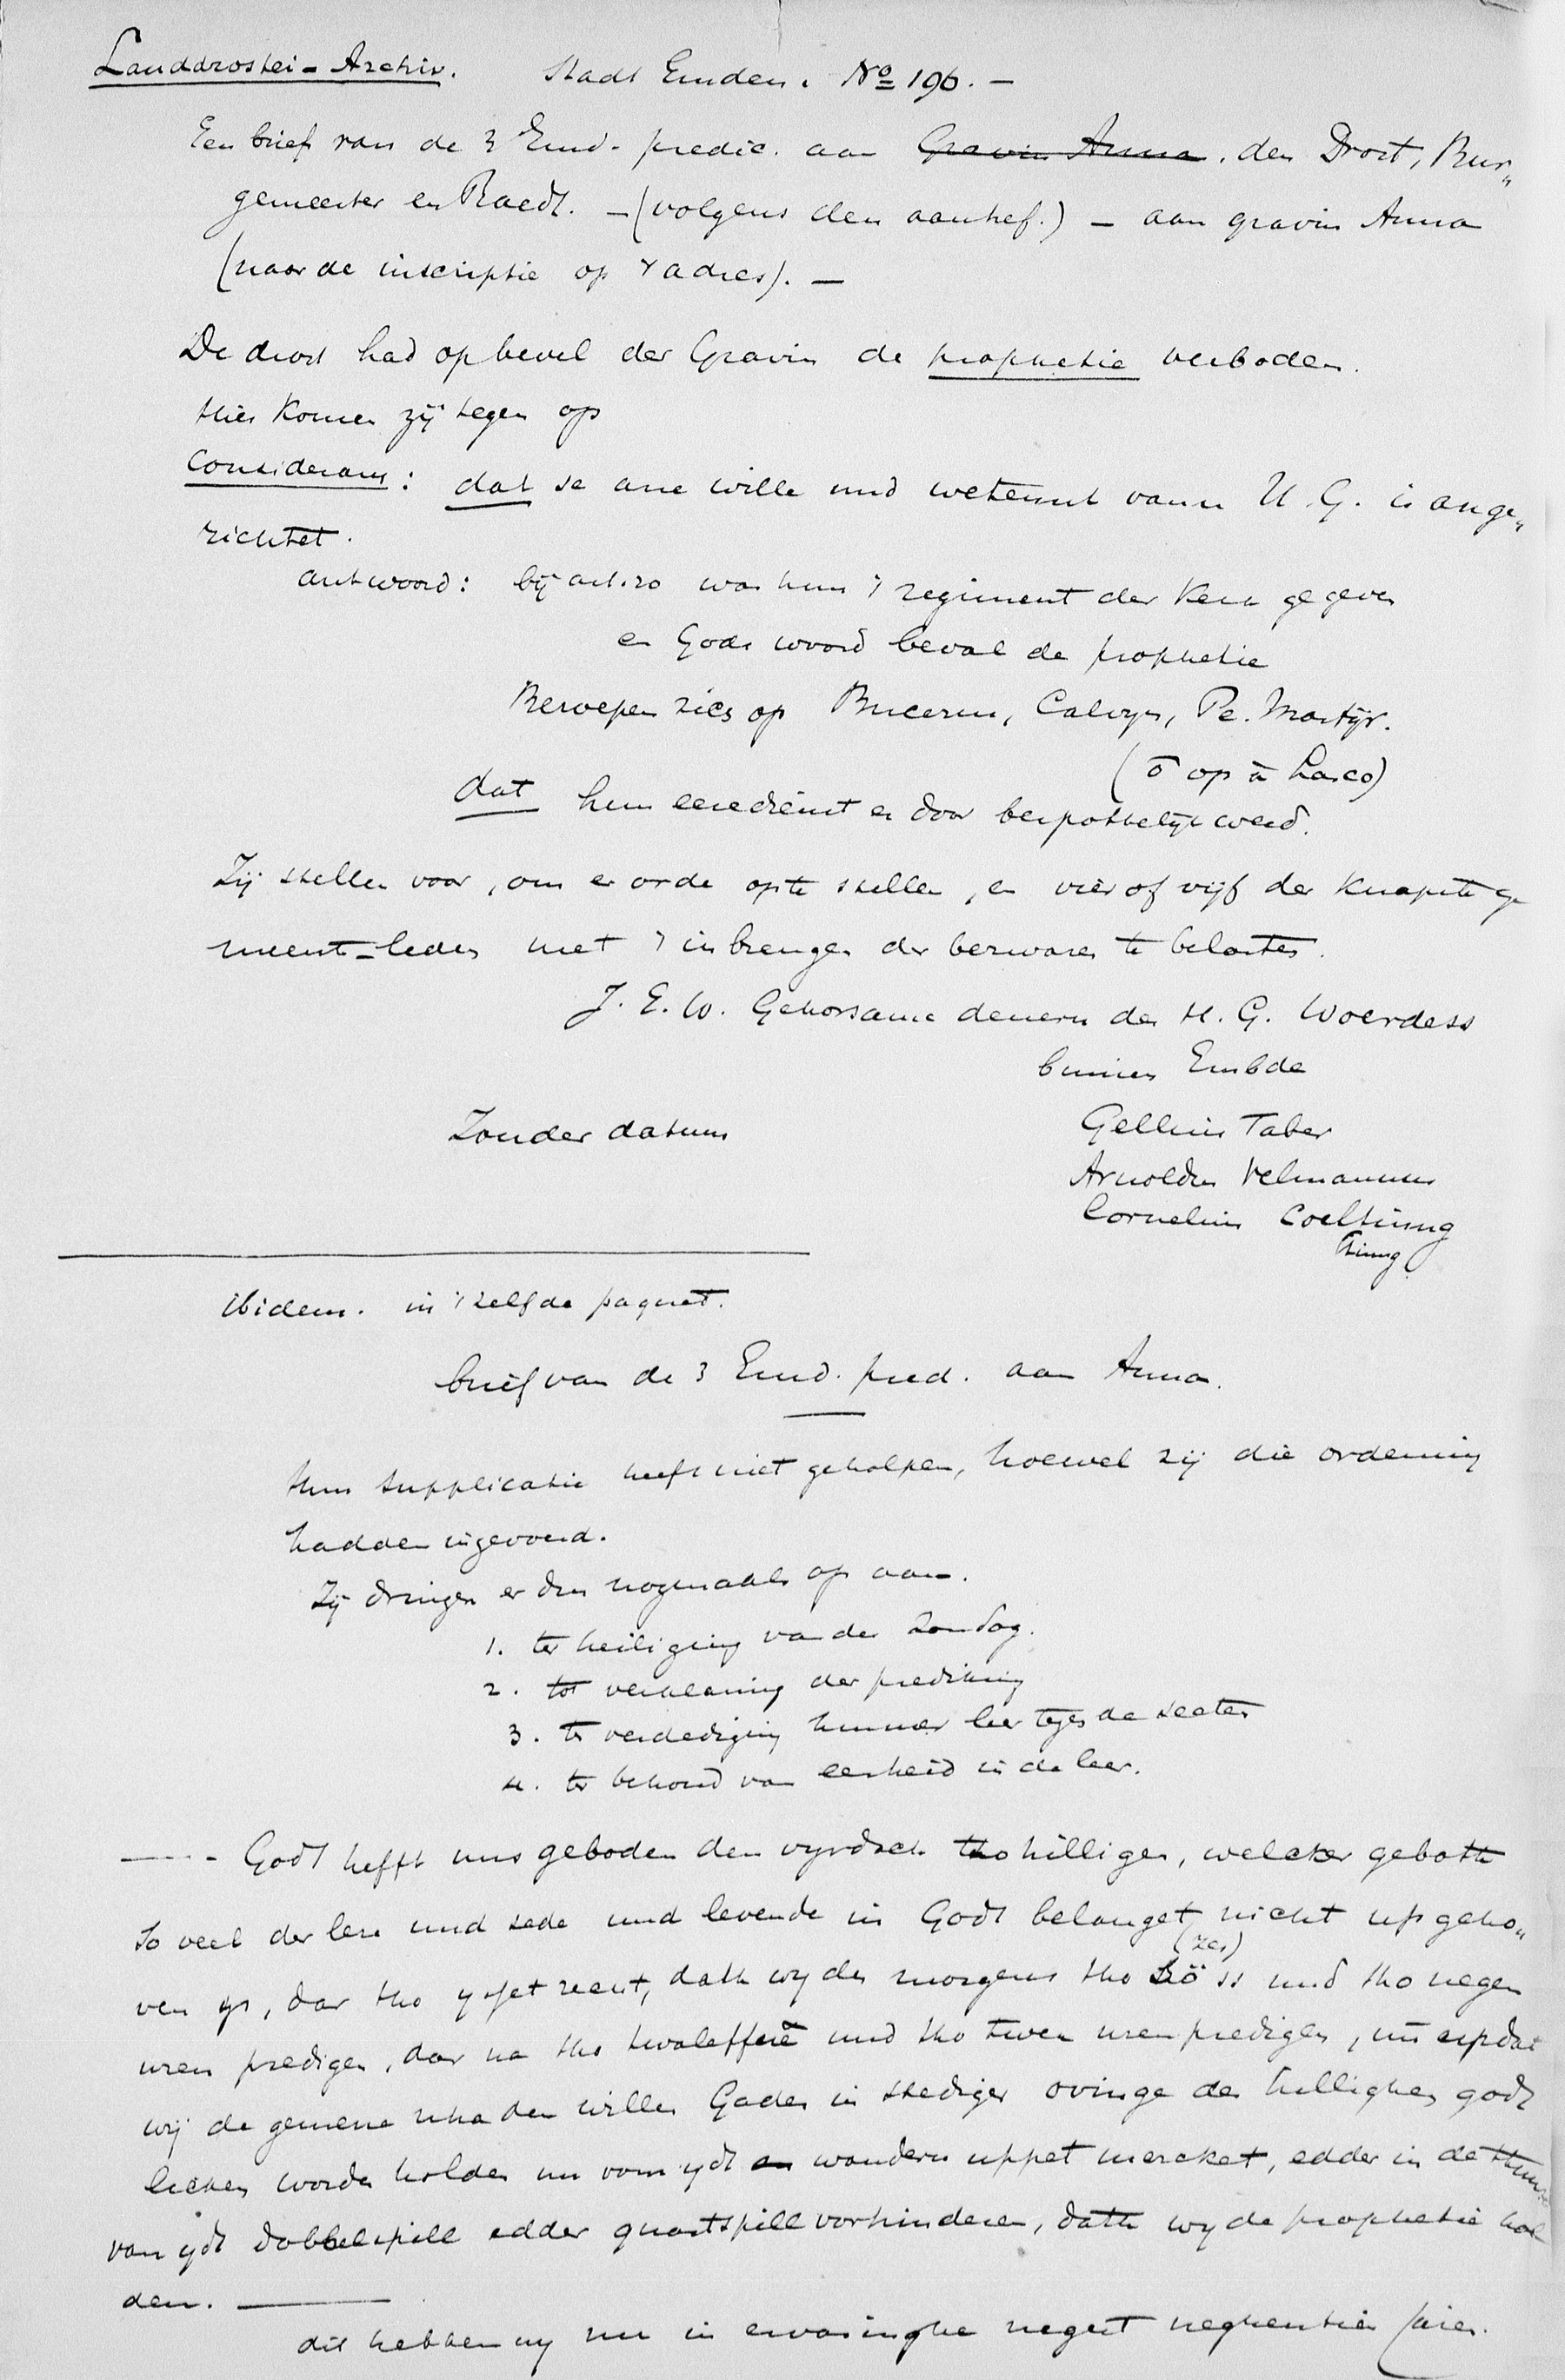 Landdrostei-Archiv. Stadt Emden. No 196. —
Een brief van de 3 Emd. predic. aan Gravin Anna, den Drost, Bur„
gemeester en Raedt. — (volgens den aanhef.) — aan gravin Anna
(naar de inscriptie op 't adres). —
De drost had op bevel der Gravin de prophetie verboden.
Hier komen zij tegen op
Considerans: dat se ane wille und wetennt vann U. G. is ange„
richtet.
antwoord: bij art. 20 was hun 't regiment der kerk gegeven
en Gods woord beval de prophetie
Beroepen zich op Bucerus, Calvyn, Pe. Martijr.
(ō op à Lasco)
dat hun eeredienst er door bespottelijk werd.
Zij stellen voor, om er orde op te stellen, en vier of vijf der knapste ge
meent-leden met 't inbrengen der bezwaren te belasten.
J. E. W. Gehorsame deners des H. G. Woerdess
binnen Embde
Zonder datum Gellius Faber
Arnoldus Velmannus
Cornelius Coeltinng
tinng
ibidem. in 't zelfde paquet.
brief van de 3 Emd. pred. aan Anna.
Hun supplicatie heeft niet geholpen, hoewel zij die ordening
hadden ingevoerd.
Zij dringen er dus nogmaals op aan.
1. ter heiliging van den Zondag.
2. tot verklaring der prediking
3. ter verdediging hunner leer tegen de secten
4. ter behoud van eenheid in de leer.
—·—·- Godt hefft uns geboden den vyrdach tho hilligen, welcker gebott
so veel der lere und sede und levende in Godt belanget, nicht upgeho„
ven ys, dar tho ysset recht, dath wy des morgens tho (zes) söss und tho negen
uren predigen, dar na tho twaleffenn und tho twen uren predigen, un updat
wij de gemene nha den willen Gades in stediger ovinge des hillighen godt
lichen wordes holden un vom ydt an wandern uppet mercket, edder in de
van ydt dobbelspill edder quaetspill vorhinderen, dath wy de prophetie hol
den. —
dit hebben wy nu in ervaringhe negest neghentein jaren.